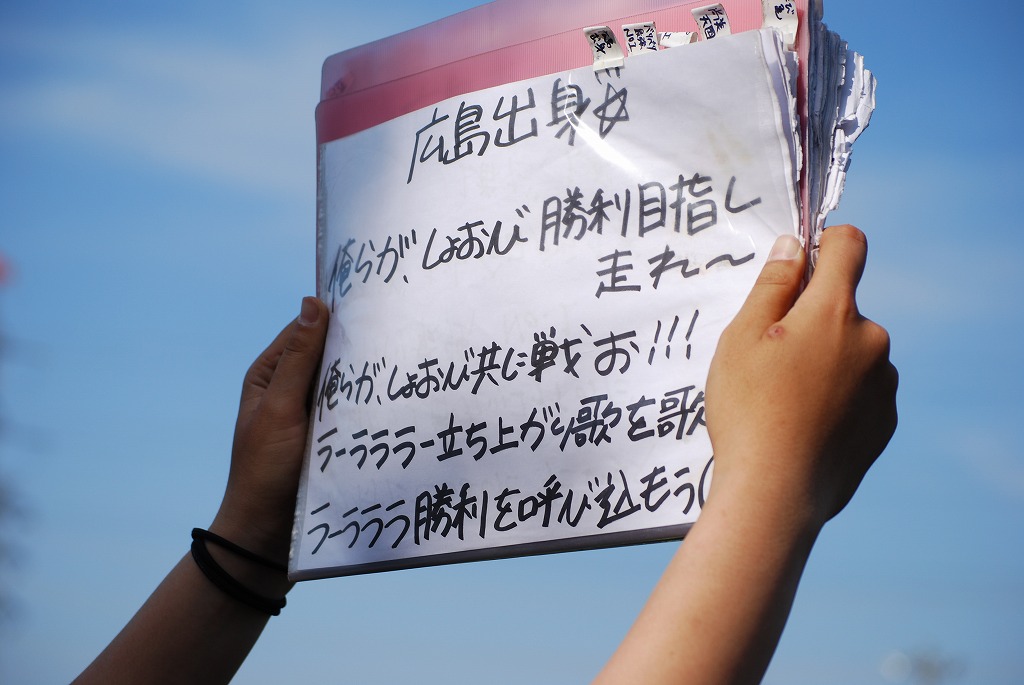 広島出身☆
俺らが、しょおんび勝利目指し
走れ〜
俺らが、しょおんび共に戦お!!!
ラーラララー立ち上がり歌を歌
ラーラララ勝利を呼び込もう(